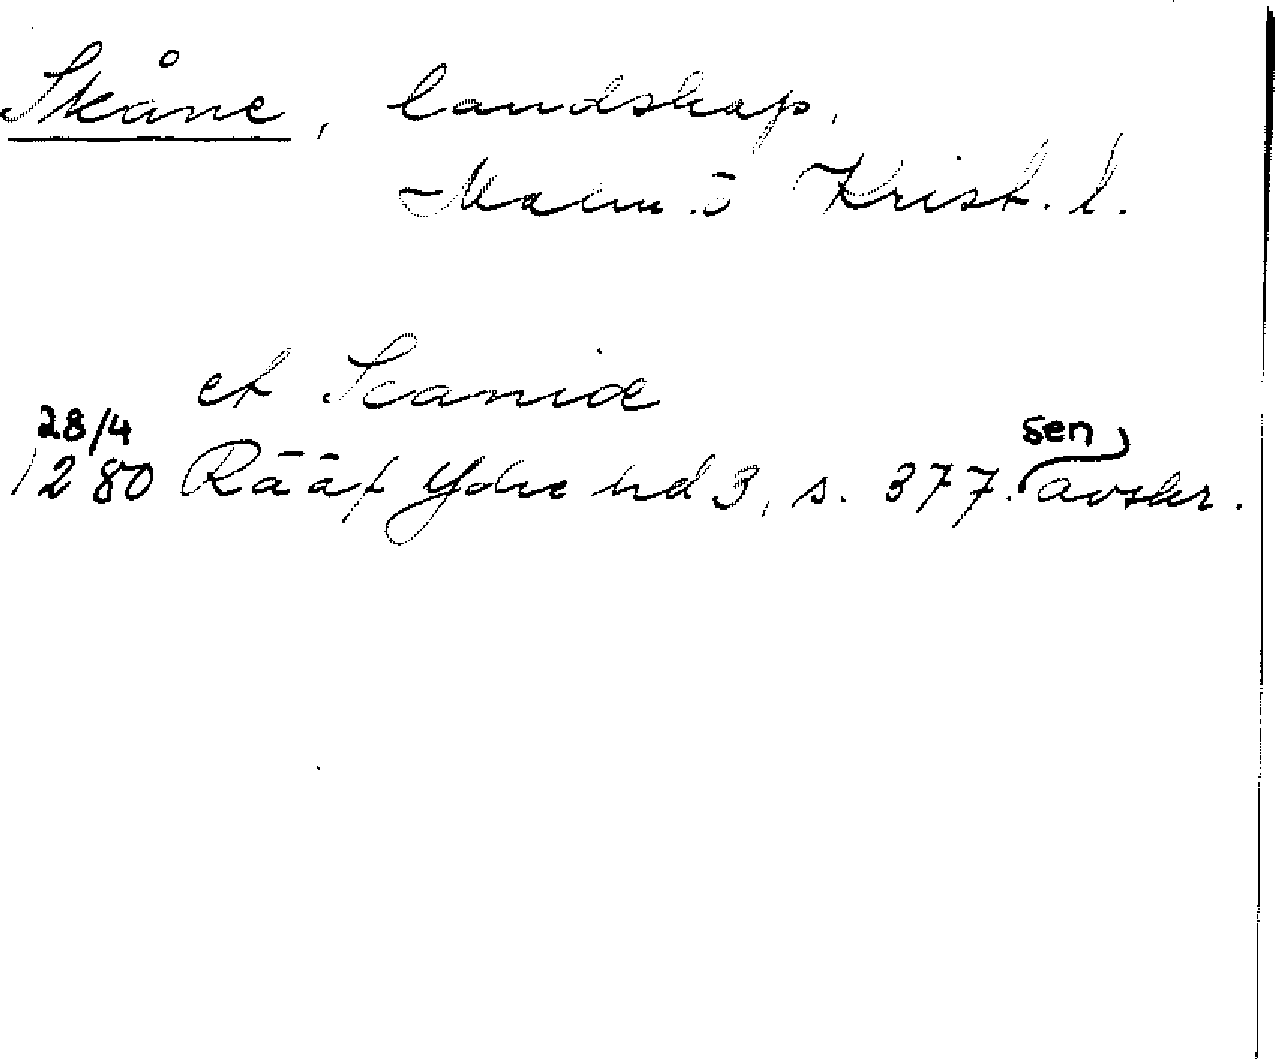 Skåne, landskap.
Malm. ö Krist. l.
et Scanie
28/4
1280 Rääf Ydre hd 3, s. 377. sen avskr.